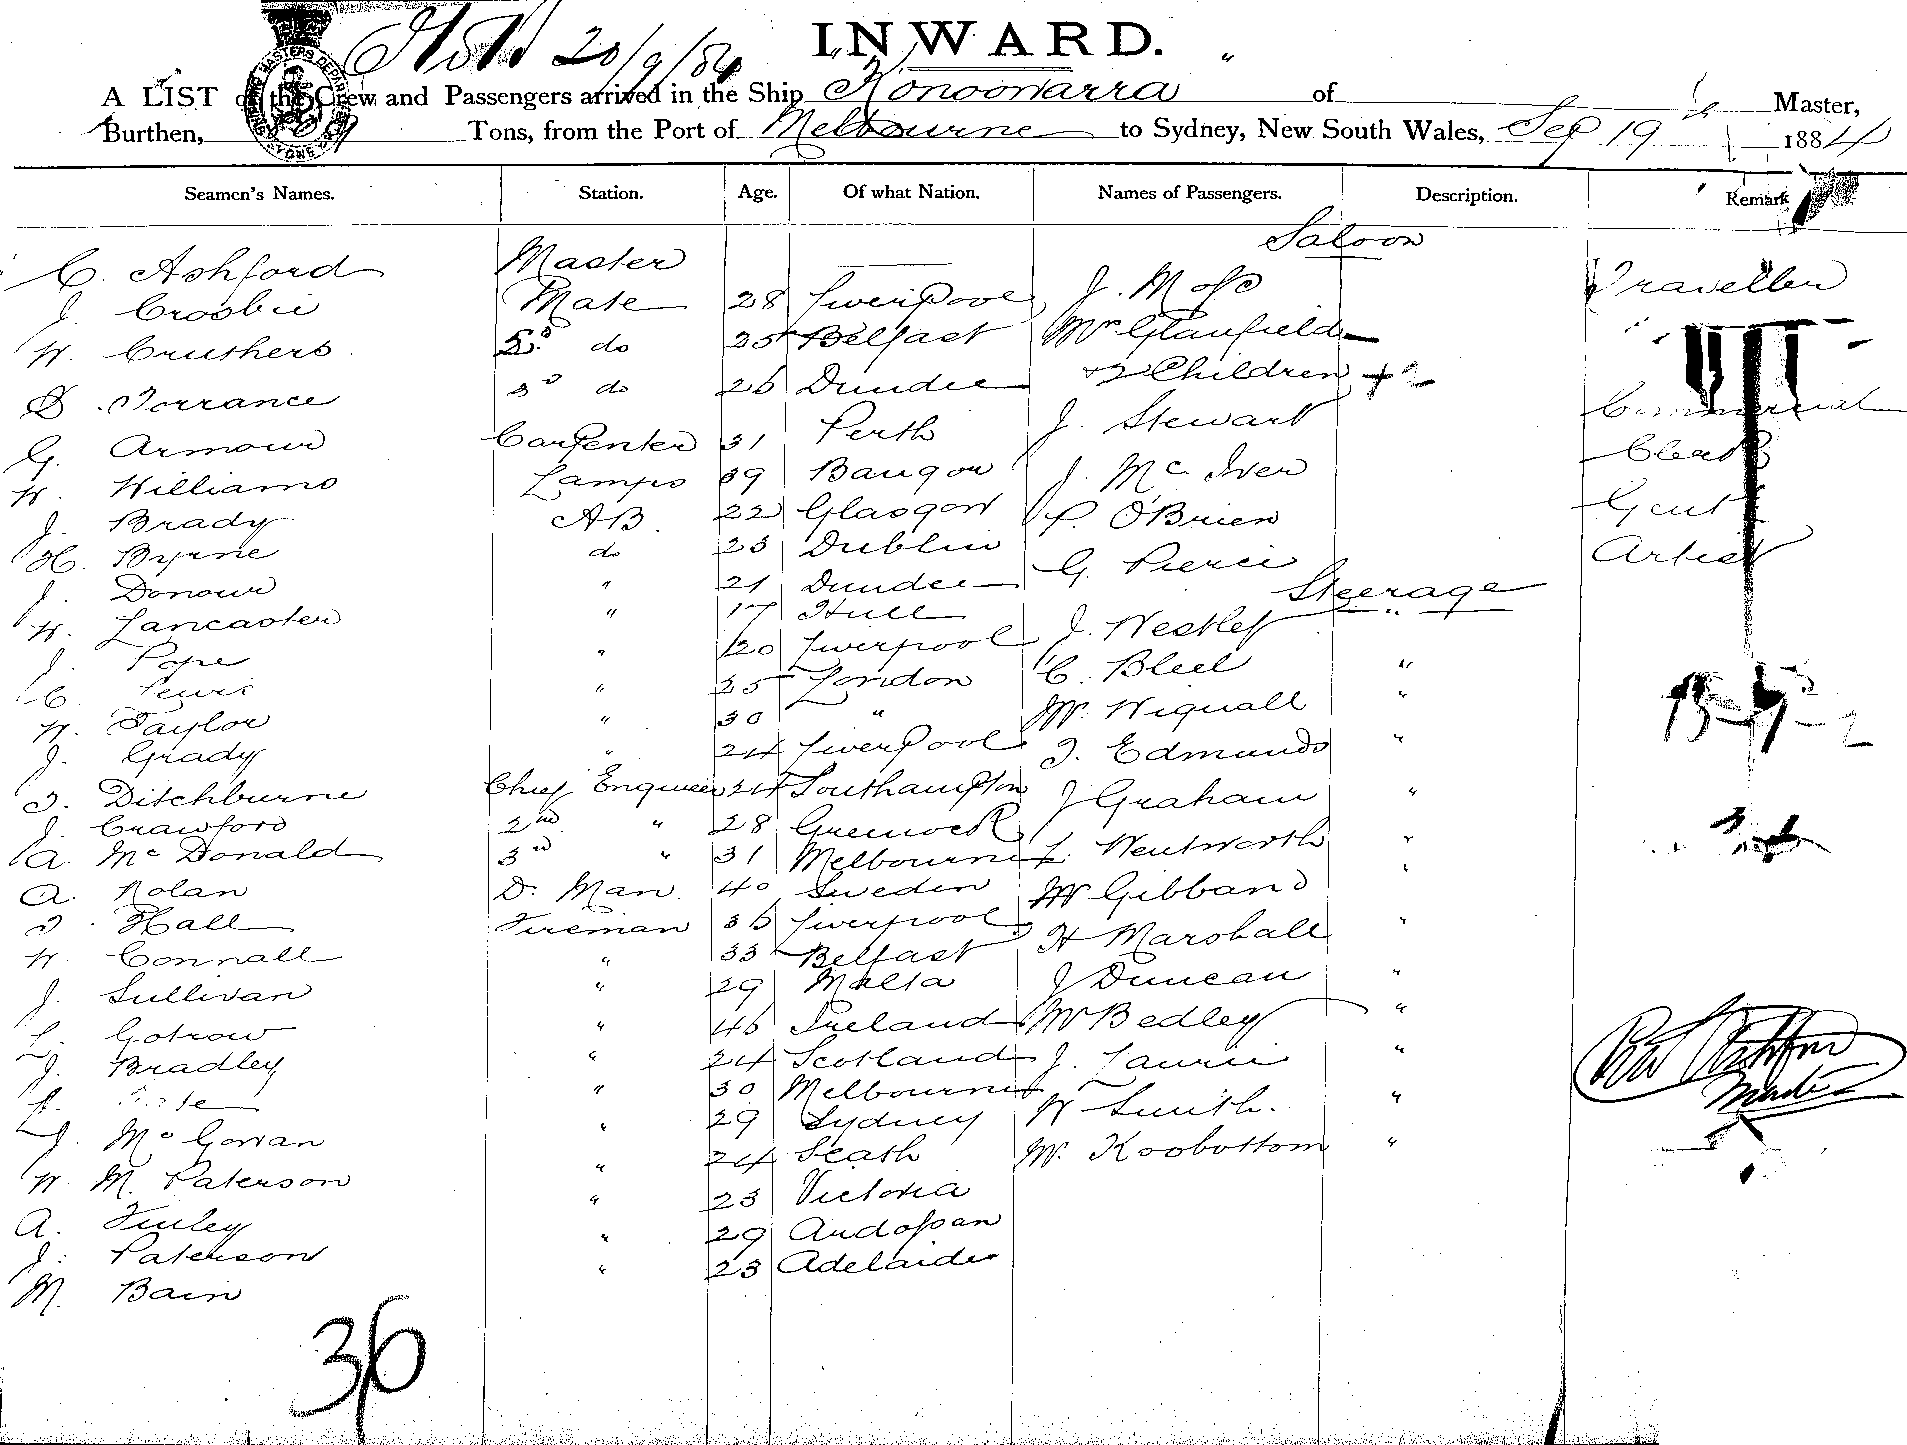 INWARD.
20/9/84
A LIST of the Crew and Passengers arrived in the Ship Konoowarra of Master,
Burthen, Tons, from the Port of Melbourne to Sydney, New South Wales, Sep 19 1884
Seamen's Names. Station. Age. Of what Nation. Names of Passengers. Description. Remark
Saloon
C. Ashford Master
J. Crosbie Mate 28 Liverpool J. Moss Traveller
W. Cruthers 2d do 25 Belfast Mr Glanfield
D. Torrance 3d do 26 Dundee + 2 Children + 2
G. Armour Carpenter 31 Perth J. Stewart Commercial
W. Williams Lamps 39 Bangor J. McIver Clerk
J. Brady AB. 22 Glasgow P. O'Brien Gent
H. Byrne do 23 Dublin G. Pierci Artist
J. Donour " 21 Dundee
Steerage
W. Lancaster " 17 Hull J. Westley "
J. Pope " 20 Liverpool C. Bleel "
C. Lewis " 25 London W. Wignall "
W. Taylor " 30 " T. Edmunds "
J. Grady " 24 Liverpool J Graham "
T. Ditchburne Chief Engineer 24 Southampton L. Wentworth "
J. Crawford 2nd " 28 Greenock W Gibband "
A. McDonald 3rd " 31 Melbourne H Marshall "
A. Nolan D. Man 40 Sweden J Duncan "
T. Hall Fireman 36 Liverpool W Bedley "
W. Connall " 33 Belfast J. Laurie "
J. Sullivan " 29 Malta W Smith. "
L. Gotrow " 46 Ireland W. Koobottom "
J. Bradley " 24 Scotland
" 30 Melbourne
J. McGowan " 29 Sydney
W. M. Paterson " 24 Leath
A. Finley " 23 Victoria
J. Paterson " 29 Ardossan
M. Bain " 23 Adelaide
Ashford
Master
36